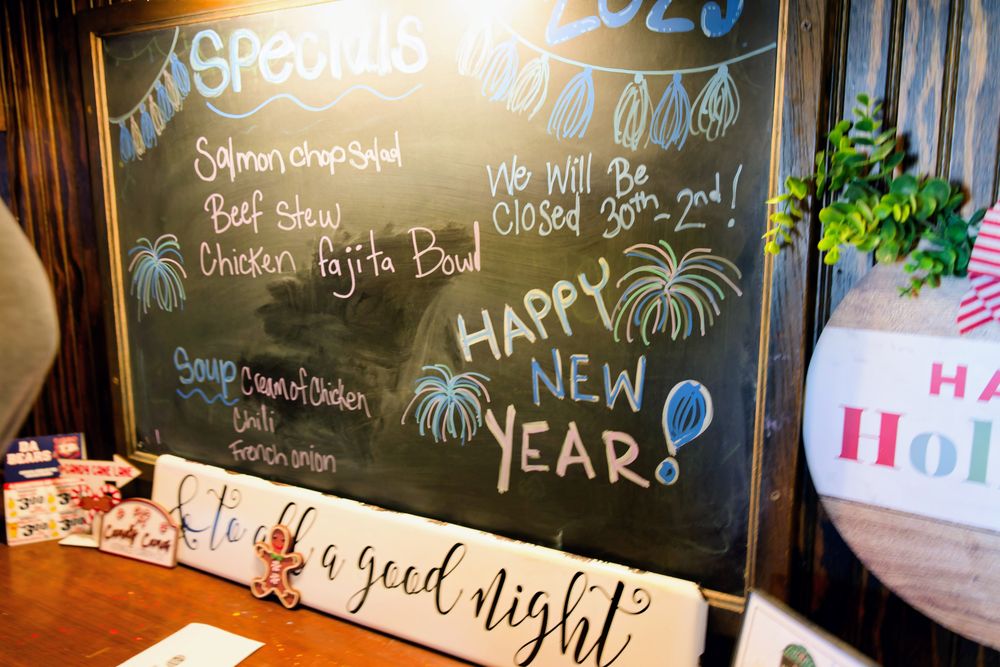 Specials
2025
Salmon chop Salad
Beef Stew
Chicken fajita Bowl
We Will Be
Closed 30th - 2nd!
HAPPY
NEW
YEAR!
Soup
Cream of Chicken
Chili
French onion
& to all a good night
DA
BEARS
CANDY CANE LANE
Candy Cane
HA
Hol